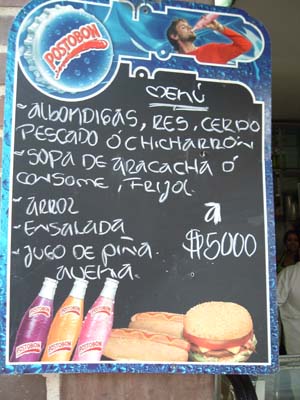 POSTOBON
MENÚ
- ALBONDIGAS, RES, CERDO
PESCADO Ó CHICHARRÓN
- SOPA DE ARACACHA Ó
CONSOME, FRIJOL.
- ARROZ
- ENSALADA
- JUGO DE PIÑA.
AVENA.
a
$5000
POSTOBON
POSTOBON
POSTOBON